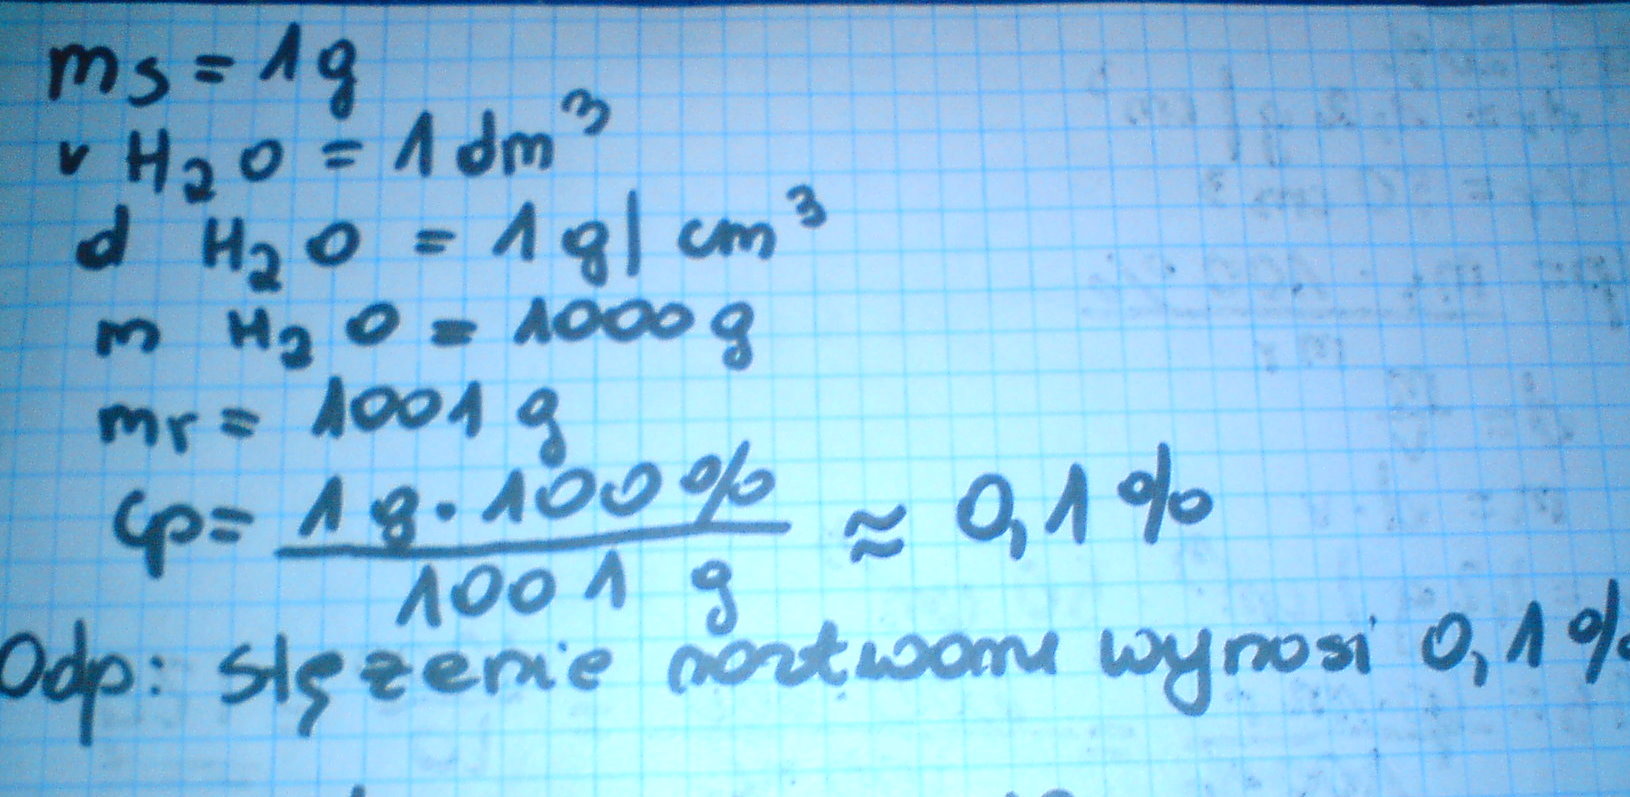 ms = 1g
v H₂O = 1 dm³
d H₂O = 1 g| cm³
m H₂O = 1000 g
mr = 1001 g
cp = 1 g · 100 % / 1001 g ≈ 0,1 %
Odp: stężenie roztworu wynosi 0,1 %